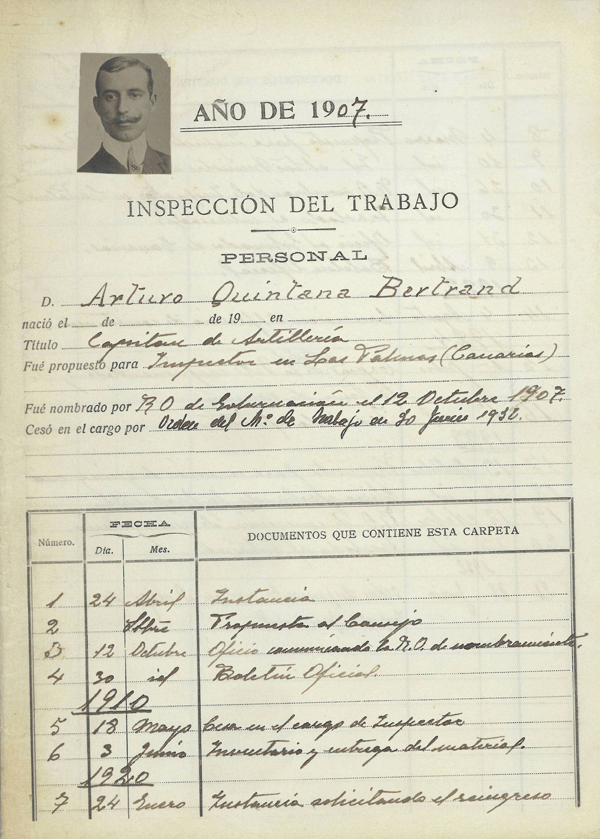 AÑO DE 1907.
INSPECCIÓN DEL TRABAJO
PERSONAL
D. Arturo Quintana Bertrand
nació el de de 19 en
Título Capitan de Artillería
Fué propuesto para Inspector en Las Palmas (Canarias)
Fué nombrado por R.O. de Gobernación el 12 Octubre 1907.
Cesó en el cargo por Orden del Mº de Trabajo en 30 Junio 1932.
Número. FECHA DOCUMENTOS QUE CONTIENE ESTA CARPETA
Día. Mes.
1 24 Abril Instancia
2 Sbbre Propuesta al Consejo
3 12 Octubre Oficio comunicando la R.O. de nombramiento.
4 30 id Boletín Oficial.
1910
5 18 Mayo Cesa en el cargo de Inspector
6 3 Junio Inventario y entrega del material.
1920
7 24 Enero Instancia solicitando el reingreso